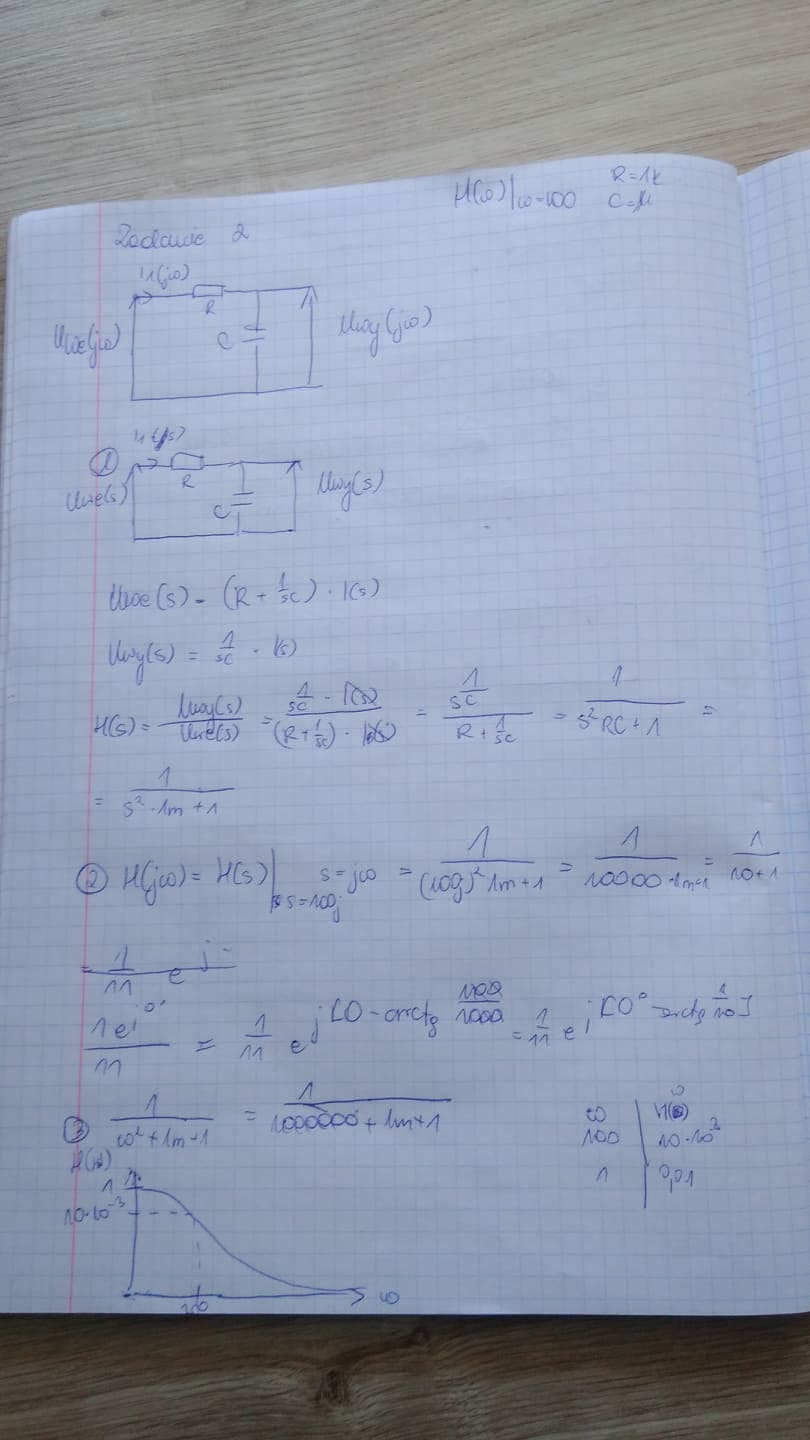 H(ω)|ω=100 R=1k
C=1μ
Zadanie 2
I1(jω)
R
Uwe(jω) C Uwy(jω)
① I1(s)
R
Uwe(s) C Uwy(s)
Uwe(s) = (R + 1/sC) · I(s)
Uwy(s) = 1/sC · I(s)
H(s) = Uwy(s)/Uwe(s) = (1/sC · I(s))/((R + 1/sC) · I(s)) = (1/sC)/(R + 1/sC) = 1/(s²RC + 1) =
= 1/(s² · 1m + 1)
② H(jω) = H(s)| s=100j s=jω = 1/((100j)² 1m + 1) = 1/(10000 · 1m+1) = 1/(10+1)
= 1/11 e^j
1e^j0°/11 = 1/11 e^j[0 - arctg 100/1000 = 1/11 e^j[0° - arctg 1/10]
③ 1/(ω² + 1m + 1) = 1/(1000000 + 1m + 1)
ω | H(ω)
100 | 10·10³
1 | 0,01
1
10·10⁻³
100 ω